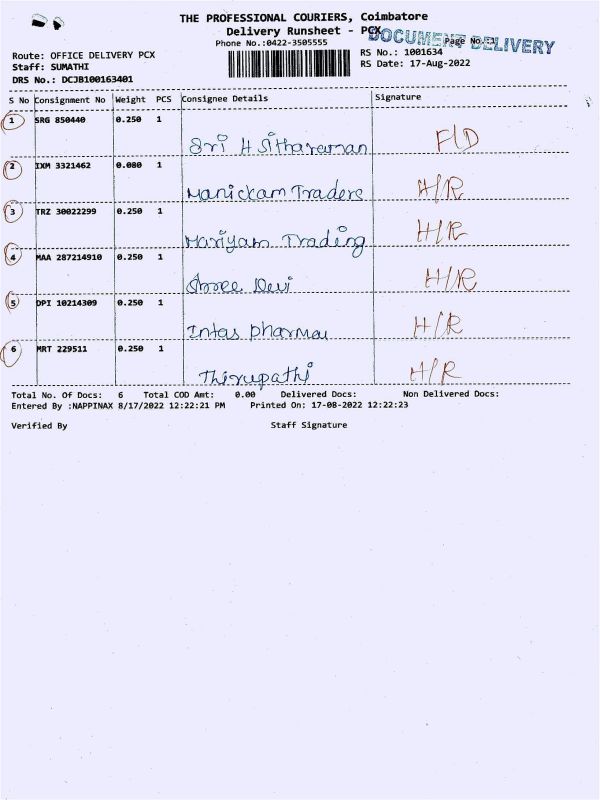 THE PROFESSIONAL COURIERS, Coimbatore
Delivery Runsheet - PCX
DOCUMENT DELIVERY
Page No.:1
Phone No.:0422-3505555
Route: OFFICE DELIVERY PCX
RS No.: 1001634
Staff: SUMATHI
RS Date: 17-Aug-2022
DRS No.: DCJB100163401
S No Consignment No Weight PCS Consignee Details Signature
1 SRG 850440 0.250 1
Sri H Sitharaman F/D
2 IXM 3321462 0.080 1
Manickam Traders H/R
3 TRZ 30022299 0.250 1
Mariyam Trading H/R
4 MAA 287214910 0.250 1
Shree Devi H/R
5 DPI 10214309 0.250 1
Intas pharma H/R
6 MRT 229511 0.250 1
Thirupathi H/R
Total No. Of Docs: 6 Total COD Amt: 0.00 Delivered Docs: Non Delivered Docs:
Entered By :NAPPINAX 8/17/2022 12:22:21 PM Printed On: 17-08-2022 12:22:23
Verified By Staff Signature